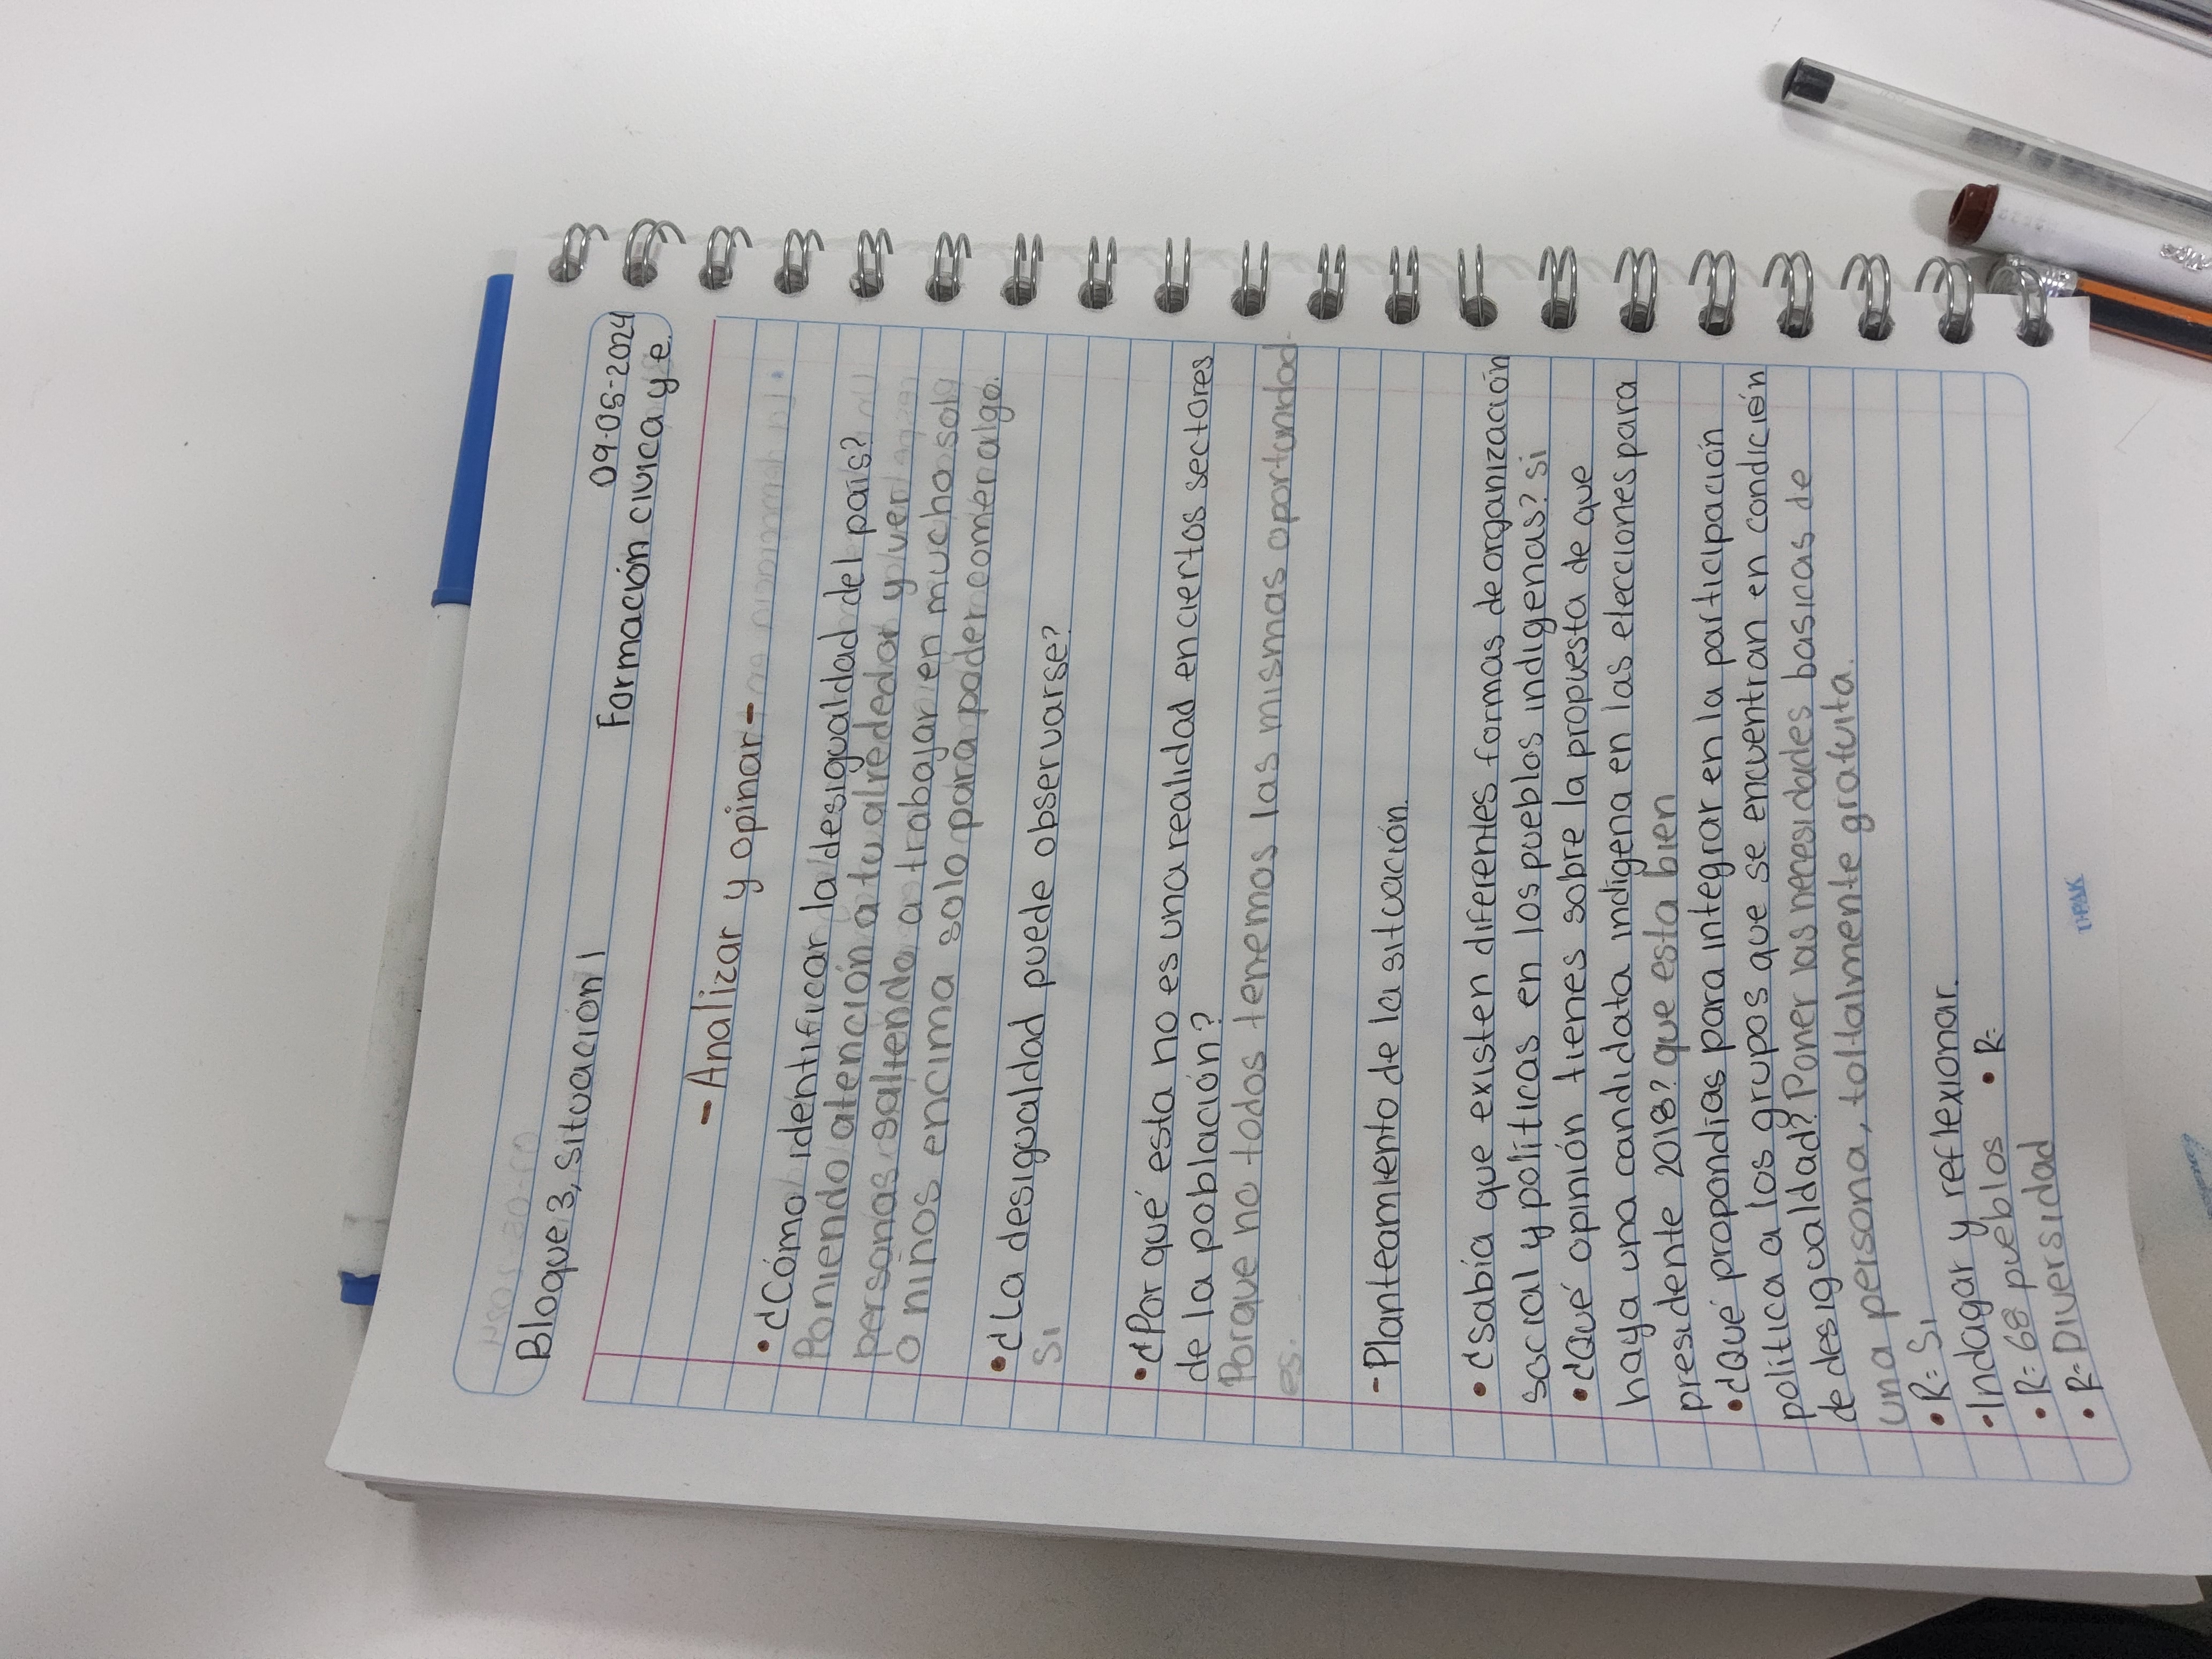 09-05-2024
Bloque 3, situación 1
Formación civica y e.
- Analizar y opinar -
• ¿Cómo identificar la desigualdad del país?
Poniendo atención a tu alrededor y ver
personas saliendo a trabajar en mucho sol
o niños encima solo para poder comer algo.
• ¿La desigualdad puede observarse?
Si
• ¿Por qué esta no es una realidad en ciertos sectores
de la población?
Porque no todos tenemos las mismas oportunidad-
es.
- Planteamiento de la situación.
• ¿sabía que existen diferentes formas de organización
social y políticas en los pueblos indigenas? si
• ¿Qué opinión tienes sobre la propuesta de que
haya una candidata indígena en las elecciones para
presidente 2018? que esta bien
• ¿Qué propondías para integrar en la participación
política a los grupos que se encuentran en condición
de desigualdad? Poner las necesidades basicas de
una persona, toltalmente gratuita.
• R= Si
• Indagar y reflexionar.
• R= 68 pueblos • R=
• R= Diversidad
T-PAK